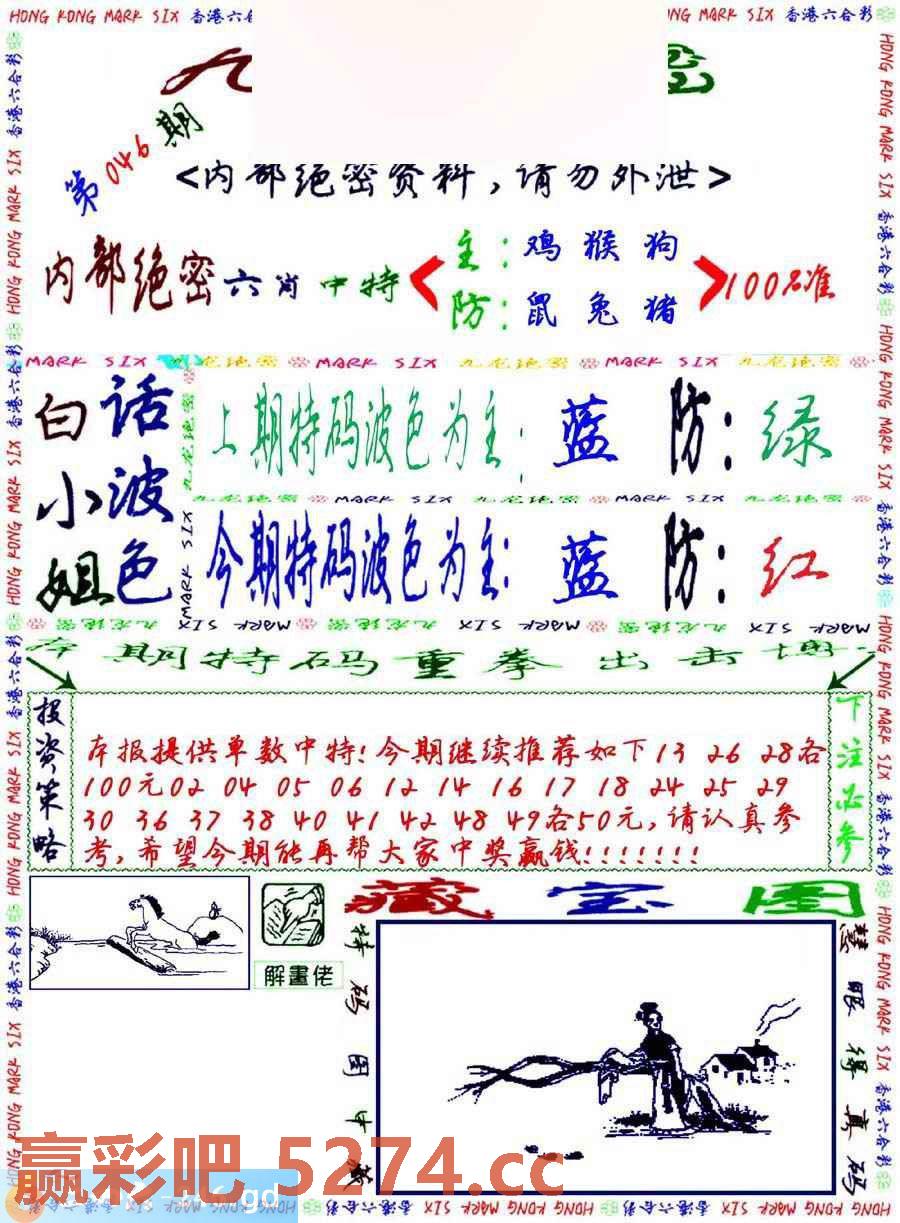 HONG KONG MARK SIX 香港六合彩
NG MARK SIX 香港六合彩
第046期
<内部绝密资料,请勿外泄>
内部绝密六肖中特
主:鸡猴狗
防:鼠兔猪
100%准
MARK SIX 九龙绝密 MARK SIX 九龙绝密 MARK SIX 九龙绝密
白话
小波
姐色
上期特码波色为主:蓝 防:绿
九龙绝密 MARK SIX 九龙绝密 MARK SIX 九龙绝密
今期特码波色为主:蓝 防:红
本期特码重拳出击
投资策略
本报提供单数中特!今期继续推荐如下13 26 28各
100元02 04 05 06 12 14 16 17 18 24 25 29
30 36 37 38 40 41 42 48 49各50元,请认真参
考,希望今期能再帮大家中奖赢钱!!!!!!!
下注必参
解畫佬
藏宝图
特码图中
慧眼得真码
赢彩吧 5274.cc